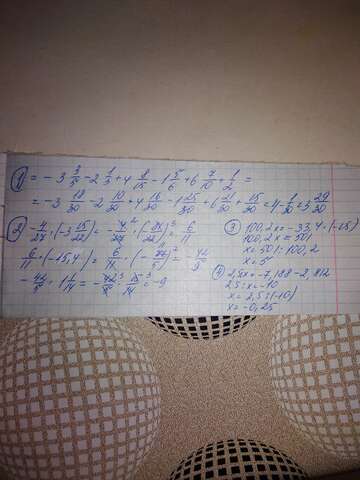 1) = -3 3/5 - 2 1/3 + 4 8/15 - 1 5/6 + 6 7/10 + 1/2 =
= -3 18/30 - 2 10/30 + 4 16/30 - 1 25/30 + 6 21/30 + 15/30 = 4 - 1/30 = 3 29/30
2) -4/27 · (-3 15/22) = -4/27 · (-81/22) = 6/11
6/11 : (-15,4) = 6/11 · (-77/5) = -42/5
-42/5 : 1 1/14 = -42/5 · 15/14 = -9
3) 100,2x = -33,4 · (-15)
100,2x = 501
x = 501 : 100,2
x = 5
4) 2,5x = -7,188 - 2,812
2,5x = -10
x = 2,5 : (-10)
x = -0,25